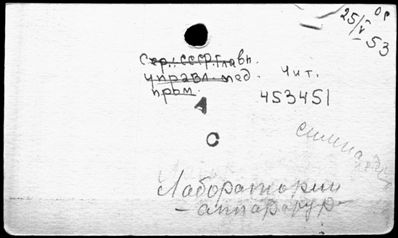 Ор
25/V 53
Сер.: СССР. Главн.
управл. мед.
пром.
Чит.
453451
А
С
Лаборатории
- аппаратур